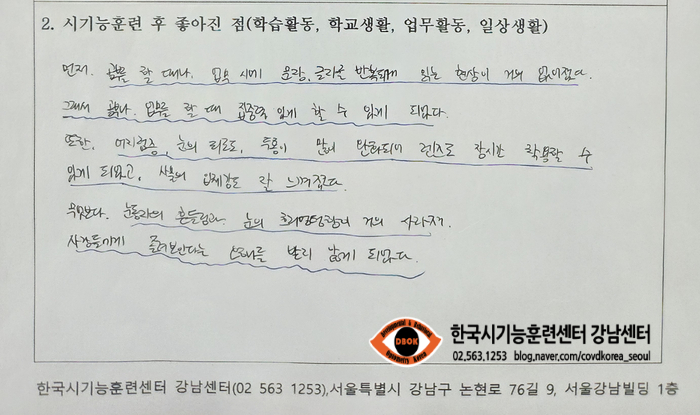 2. 시기능훈련 후 좋아진 점(학습활동, 학교생활, 업무활동, 일상생활)
먼저. 공부를 할 때나. 업무 시에 문장, 글자를 반복되게 읽는 현상이 거의 없어졌다.
그래서 공부나. 업무를 할 때 집중력 있게 할 수 있게 되었다.
또한, 어지럼증, 눈의 피로도, 두통이 많이 완화되어 렌즈도 장시간 착용할 수
있게 되었고, 사물의 입체감도 잘 느껴졌다.
무엇보다. 눈동자의 흔들림과. 눈의 거의 사라져.
사람들에게 째려본다는 소리를 듣게 되었다.
Developmental & Behavioral
DBOK
Optometry Korea
한국시기능훈련센터 강남센터
02.563.1253 blog.naver.com/covdkorea_seoul
한국시기능훈련센터 강남센터(02 563 1253),서울특별시 강남구 논현로 76길 9, 서울강남빌딩 1층